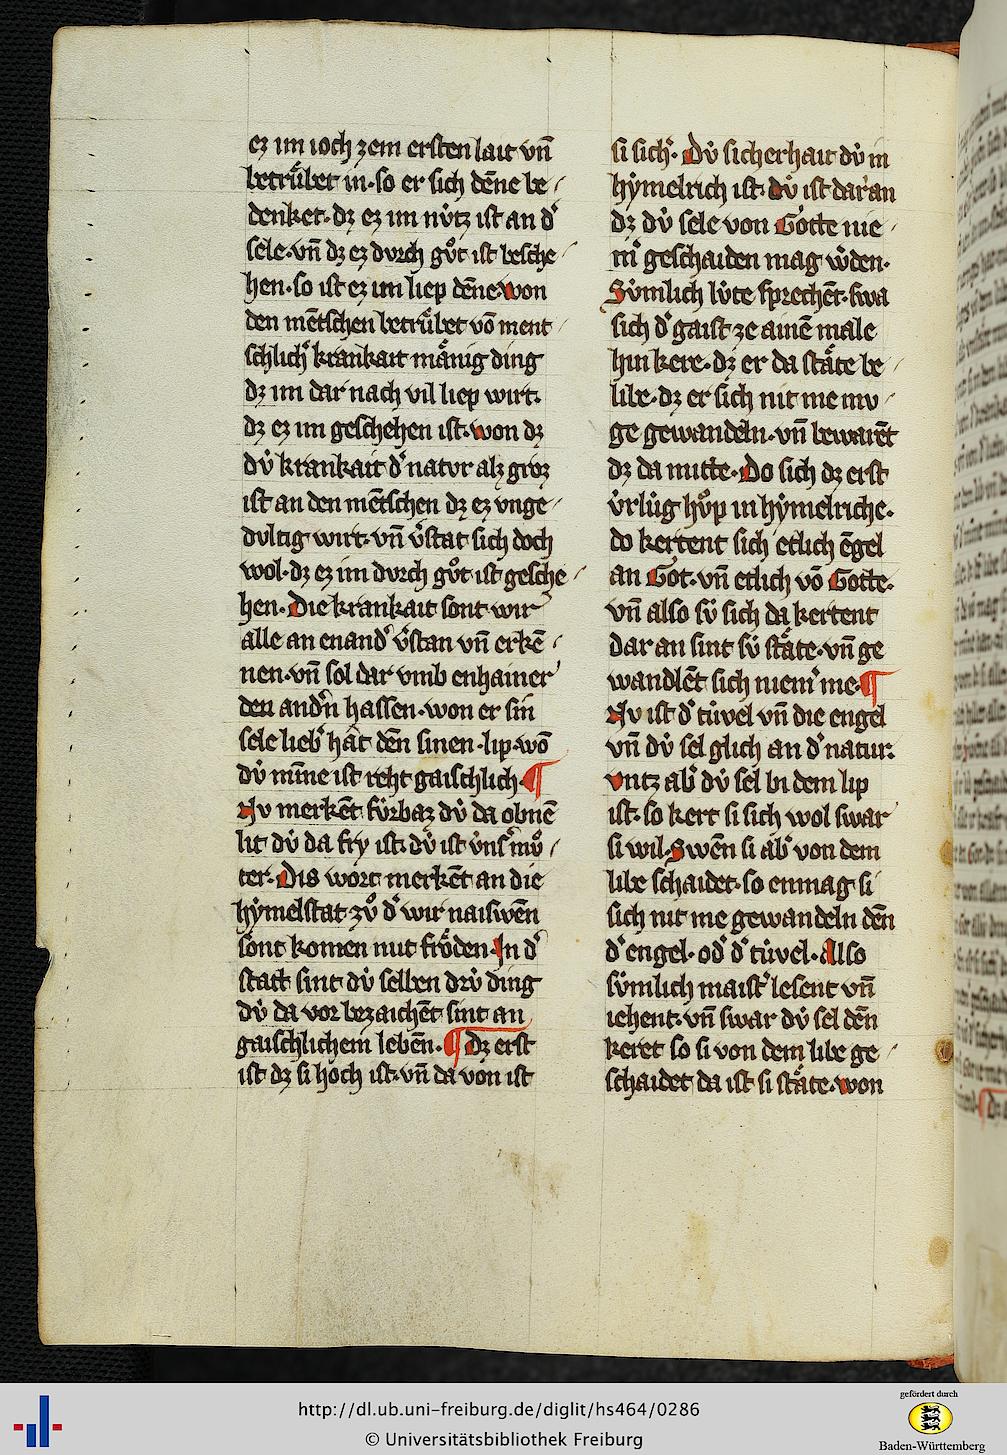 eꝫ im ioch ꝫem ersten lait vn̄
betrv̊bet in· so er sich dēne be
denket· dꝫ eꝫ im nv̇tꝫ ist an d᷒
sele· vn̄ dꝫ eꝫ dvrch gv̊t ist besche
hen· so ist eꝫ im liep dēne· won
den mētschen betrv̊bet vō ment
schlich᷒ krankait mänig ding
dꝫ im dar nach vil liep wirt·
dꝫ eꝫ im geschehen ist· won dꝫ
dv̇ krankait d᷒ natvr alꝫ groꝫ
ist an den mētschen dꝫ eꝫ vnge
dvltig wirt· vn̄ v᷒stat sich doch
wol· dꝫ eꝫ im dvrch gv̊t ist gesche
hen· Die krankait sont wir
alle an enand᷒ v᷒stan vn̄ erkē
nen· vn̄ sol dar vmb enhainer
den andn᷒ hassen· won er sin
sele lieb᷒ hât dēn sinen· lip· wō
dv̇ mīne ist reht gaischlich· ¶
Nv merkēt fv̇rbaꝫ dv̇ da obnē
lit dv̇ da fry ist· dv̇ ist v̇ns᷒ mv̊
ter· Dis wort merkēt an die
hẏmelstat· ꝫv̊ d᷒ wir naiswēn
sont komen mit frǒden· In d᷒
statt sint dv̇ selben drv̇ ding
dv̇ da vor beꝫaichēt sint an
gaischlichem lebēn· ¶ Dꝫ erst
ist dꝫ si hoch ist· vn̄ da von ist
si sich᷒· Dv̇ sicherhait dv̇ in
hẏmelrich ist· dv̇ ist dar an
dꝫ dv̇ sele von Gotte nie
m᷒ geschaiden mag w᷒den·
Sv̇mlich lv̇te sprechēt· swa
sich d᷒ gaist ꝫe ainē male
hin kere· dꝫ er da stäte be
libe· dꝫ er sich nit me mv
ge gewandeln· vn̄ bewarēt
dꝫ da mitte· Do sich dꝫ erst
v̇rlv̇g hv̊p in hẏmelriche·
do kertent sich etlich ēgel
an Got· vn̄ etlich vō Gotte·
vn̄ also sv̇ sich da kertent
dar an sint sv̇ stäte· vn̄ ge
wandlēt sich niem᷒ me· ¶
Nv ist d᷒ tv̇vel vn̄ die engel
vn̄ dv̇ sel glich an d᷒ natur·
vntꝫ ab᷒ dv̇ sel bi dem lip
ist· so kert si sich wol swar
si wil· Swēn si ab᷒ von dem
libe schaidet· so enmag si
sich nit me gewandeln dēn
d᷒ engel· od᷒ d᷒ tv̇vel· Also
sv̇mlich maist᷒ lesent vn̄
iehent· vn̄ swar dv̇ sel dēn
keret so si von dem libe ge
schaidet da ist si stäte· won
http://dl.ub.uni-freiburg.de/diglit/hs464/0286
© Universitätsbibliothek Freiburg
gefördert durch
Baden-Württemberg